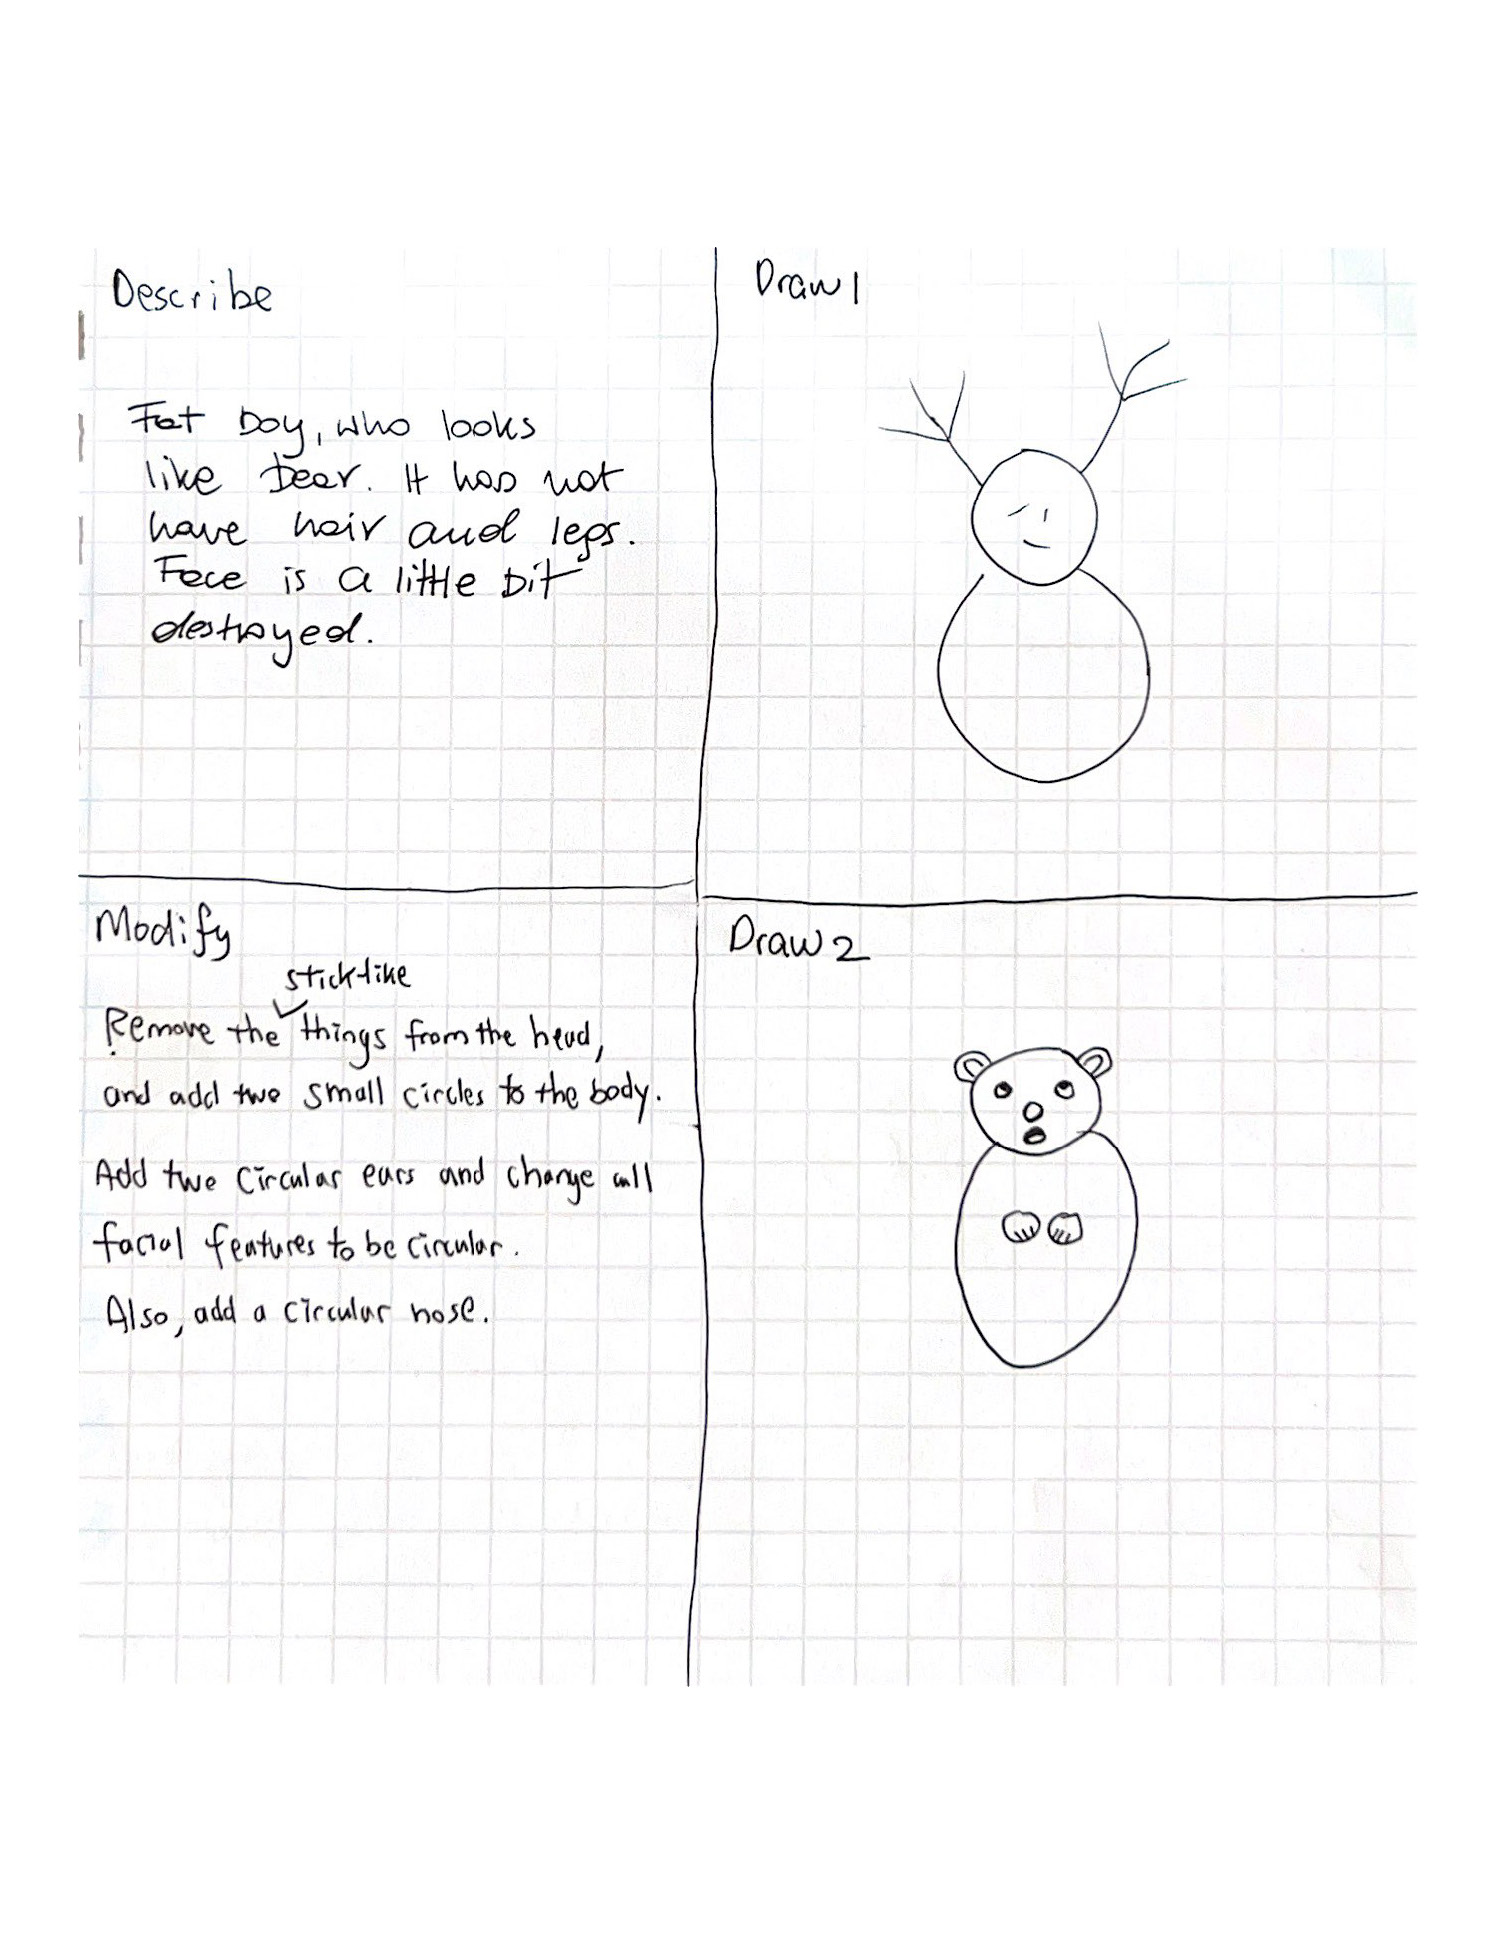 Describe
Fat boy, who looks
like bear. It has not
have hair and legs.
Face is a little bit
destroyed.
Draw1
Modify
sticklike
Remove the things from the head,
and add two small circles to the body.
Add two circular ears and change all
facial features to be circular.
Also, add a circular nose.
Draw2